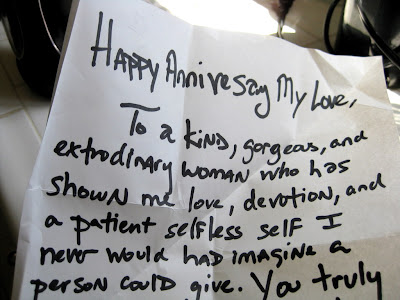 Happy Annivesay My Love,
To a kind, gorgeous, and
extrodinary woman who has
shown me love, devotion, and
a patient selfless self I
never would had imagine a
person could give. You truly